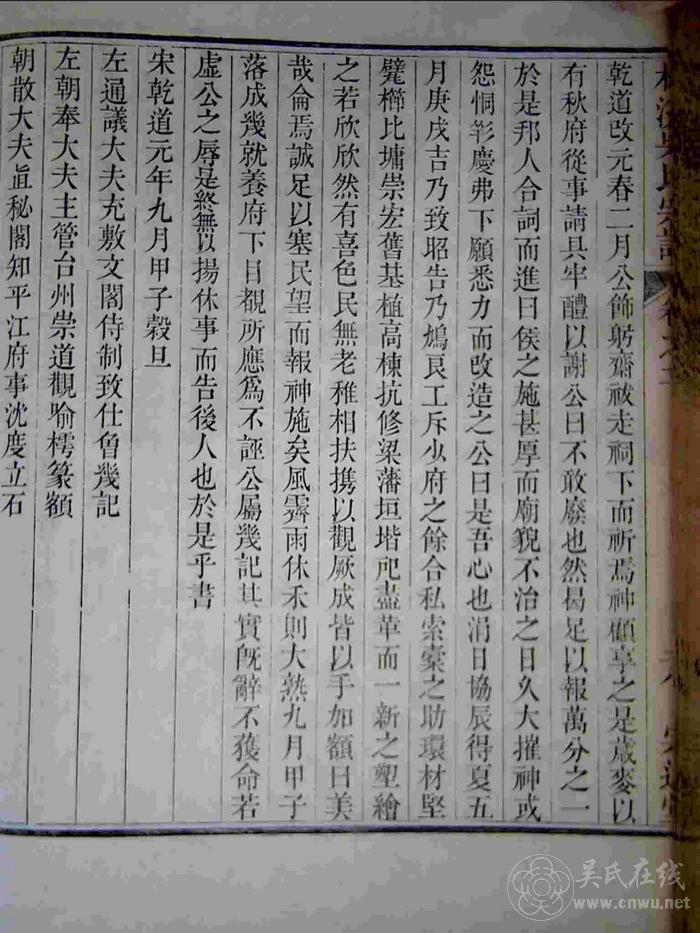 乾道改元春二月公飾躬齋祓走祠下而祈焉神顧享之是歲麥以
有秋府從事請具牢醴以謝公曰不敢廢也然曷足以報萬分之一
於是邦人合詞而進曰侯之施甚厚而廟貌不治之日久大摧神或
怨恫彰慶弗下願悉力而改造之公曰是吾心也涓日協辰得夏五
月庚戌吉乃致昭告乃鳩良工斥少府之餘合私索橐之助環材堅
甓櫛比墉崇宏舊基植高棟抗修梁藩垣堦戺盡革而一新之塑繪
之若欣欣然有喜色民無老稚相扶携以觀厥成皆以手加額曰美
哉侖焉誠足以塞民望而報神施矣風霽雨休禾則大熟九月甲子
落成幾就養府下日覩所應為不誣公屬幾記其實既辭不獲命若
虛公之辱是終無以揚休事而告後人也於是乎書
宋乾道元年九月甲子穀旦
左通議大夫充敷文閣侍制致仕曾幾記
左朝奉大夫主管台州崇道觀喻樗篆額
朝散大夫直秘閣知平江府事沈度立石
吴氏在线
www.cnwu.net